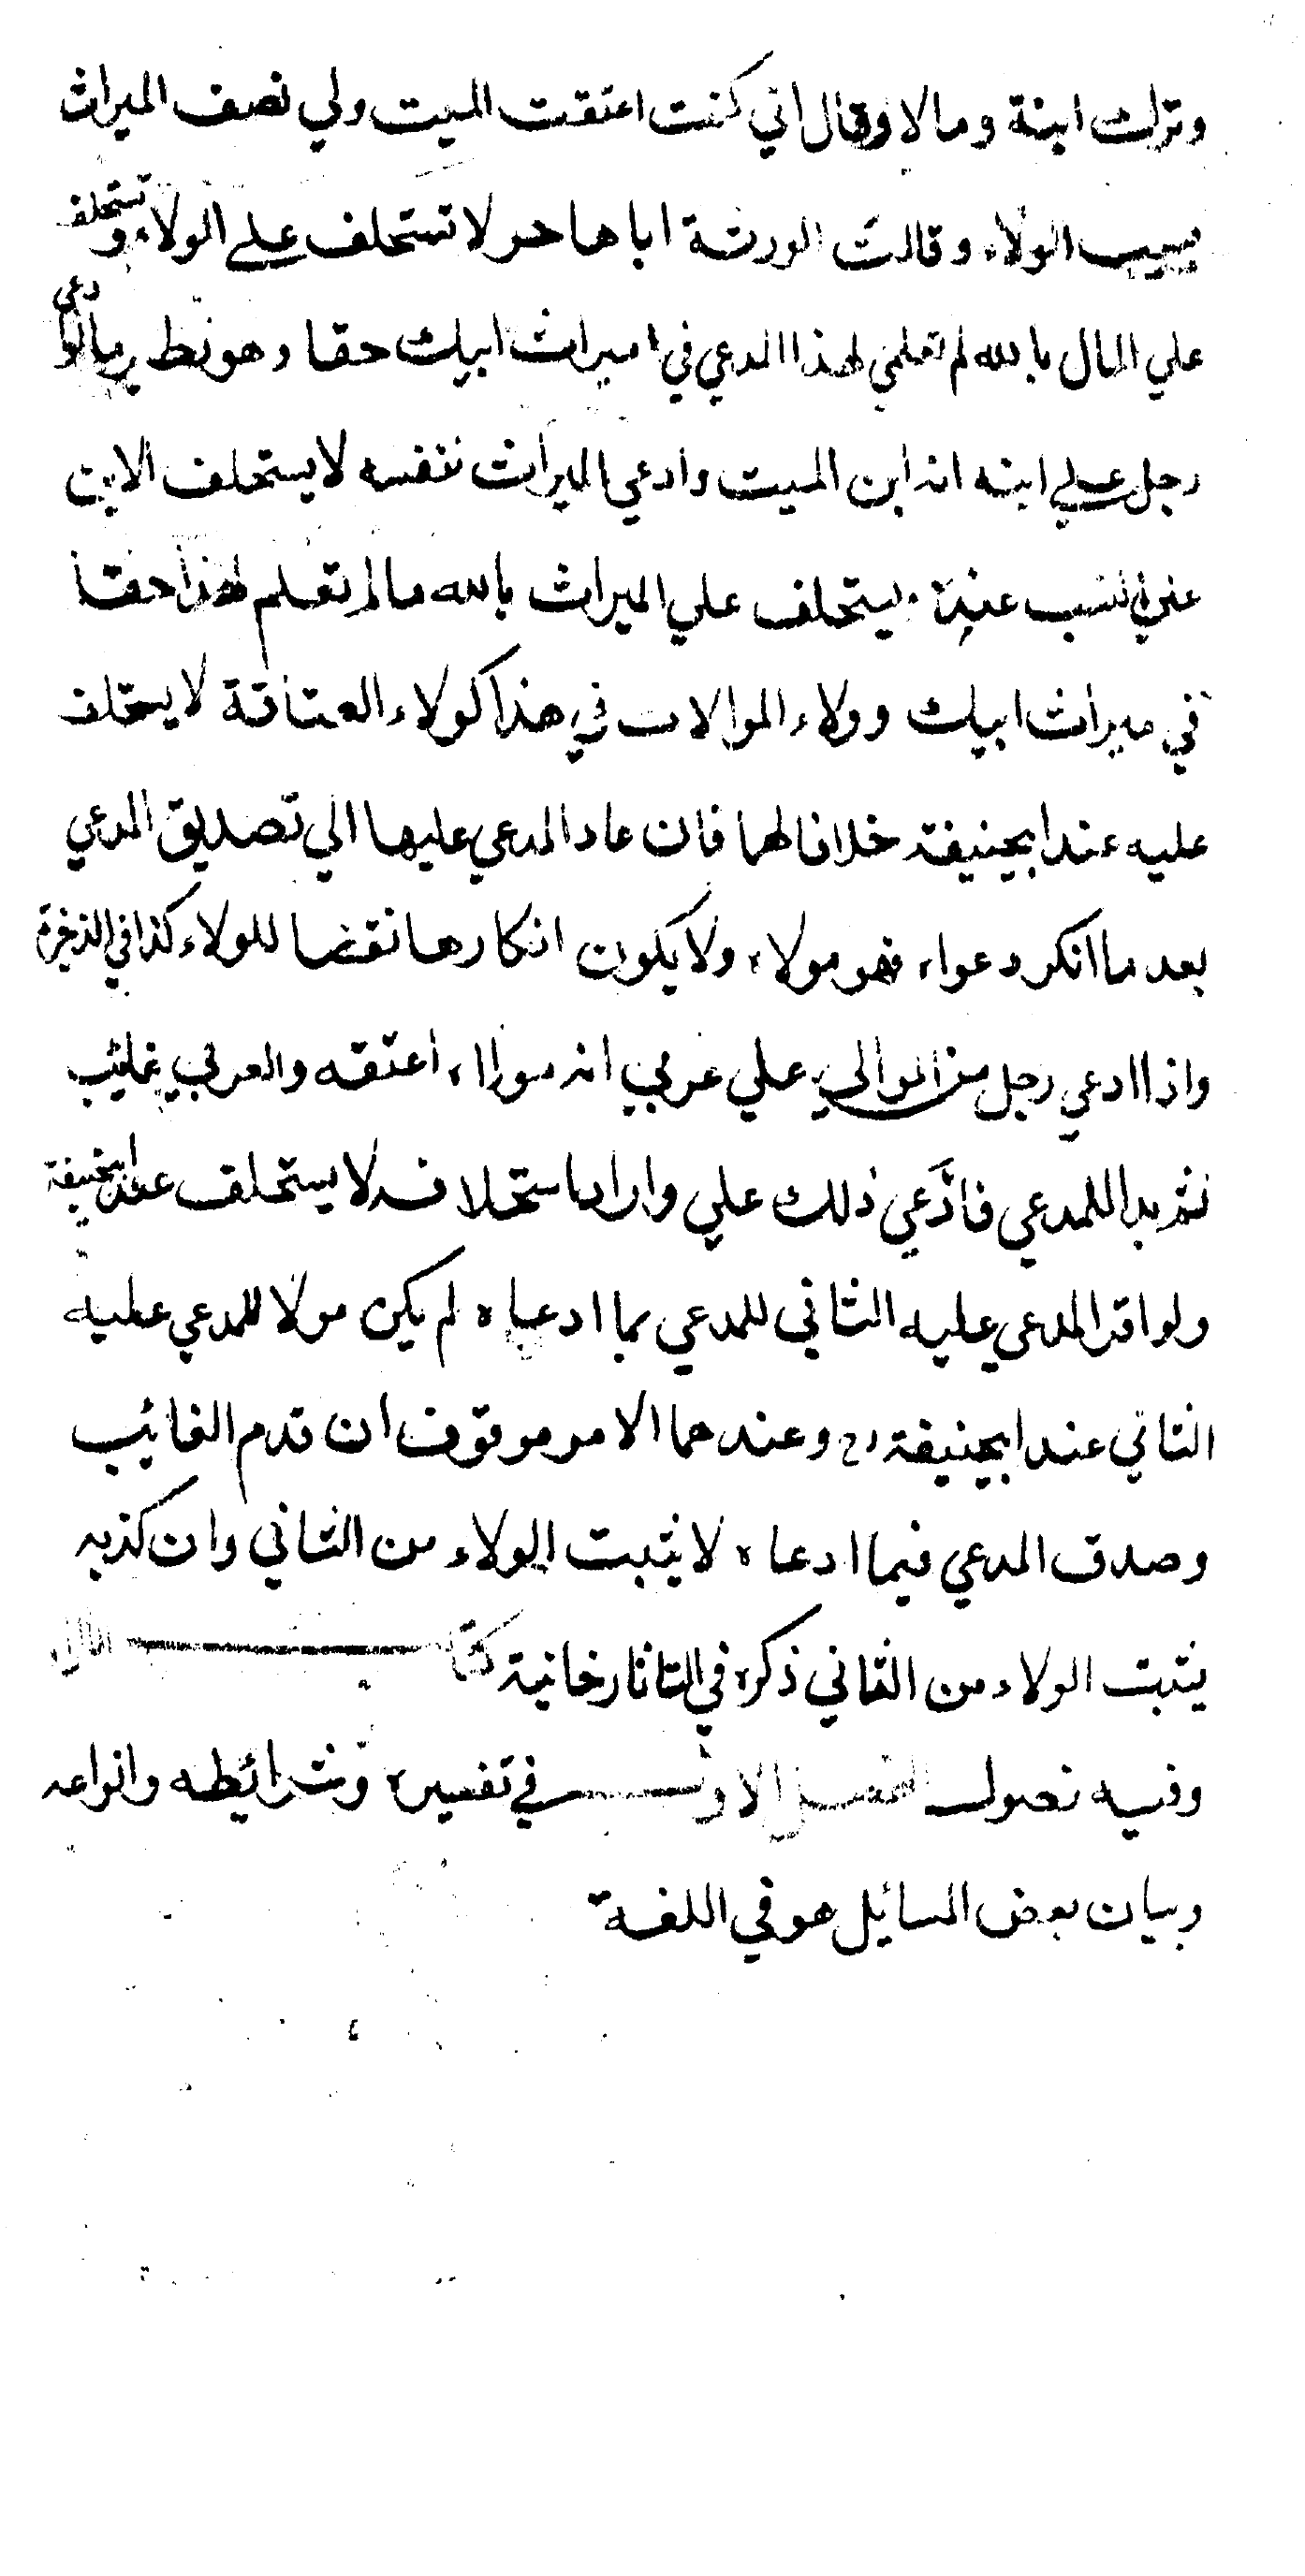 وترك ابنة ومالا وقال اني كنت اعتقت الميت ولي نصف الميراث
بسبب الولاء وقالت الورثة اباها حر لا تستحلف علي الولاء و تستحلف
علي المال بالله لم تعلمي لهذا المدعي في ميراث ابيك حقا وهو نظير مالو ادعي
رجل علي ابنه انه ابن الميت وادعي الميراث نفسه لا يستحلف الابن
النسب عنده يستحلف علي الميراث بالله مالم تعلم لهذا حقا
في ميراث ابيك وولاء الموالات في هذا كولاء العتاقة لا يحلف
عليه عند ابيحنيفة خلافا لهما فان عاد المدعي عليها الي تصديق المدعي
بعد ما انكر دعواه فهو مولاه ولا يكون انكارها نقضا للولاء كذا في الذخيرة
واذا ادعي رجل من الموالي علي عربي انه مولاه اعتقه والعربي غايب
ثم بدا للمدعي فادَّعي ذلك علي واراد استحلافه لا يستحلف عند ابيحنيفة
ولو اقر المدعي عليه الثاني للمدعي بما ادعاه لم يكن مولا للمدعي عليه
الثاني عند ابيحنيفة رح وعندهما الامر موقوف ان قدم الغائب
وصدق المدعي فيما ادعاه لا يثبت الولاء من الثاني وان كذبه
يثبت الولاء من الثاني ذكره في التاتارخانية كتاب
وفيه فصول الفصل الاول في تفسيره وشرائطه وانواعه
وبيان بعض المسائل هو في اللغة